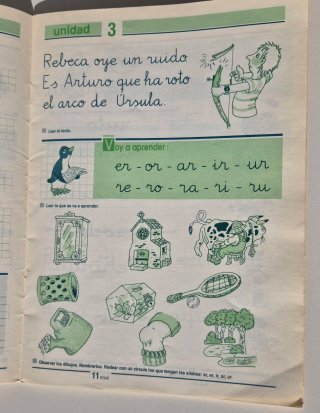 unidad 3
Rebeca oye un ruido
Es Arturo que ha roto
el arco de Úrsula.
Leer el texto.
Voy a aprender:
er - or - ar - ir - ur
re - ro - ra - ri - ru
Leer lo que se va a aprender.
Observar los dibujos. Nombrarlos. Rodear con un círculo los que tengan las sílabas: ar, er, ir, or, ur.
11 once